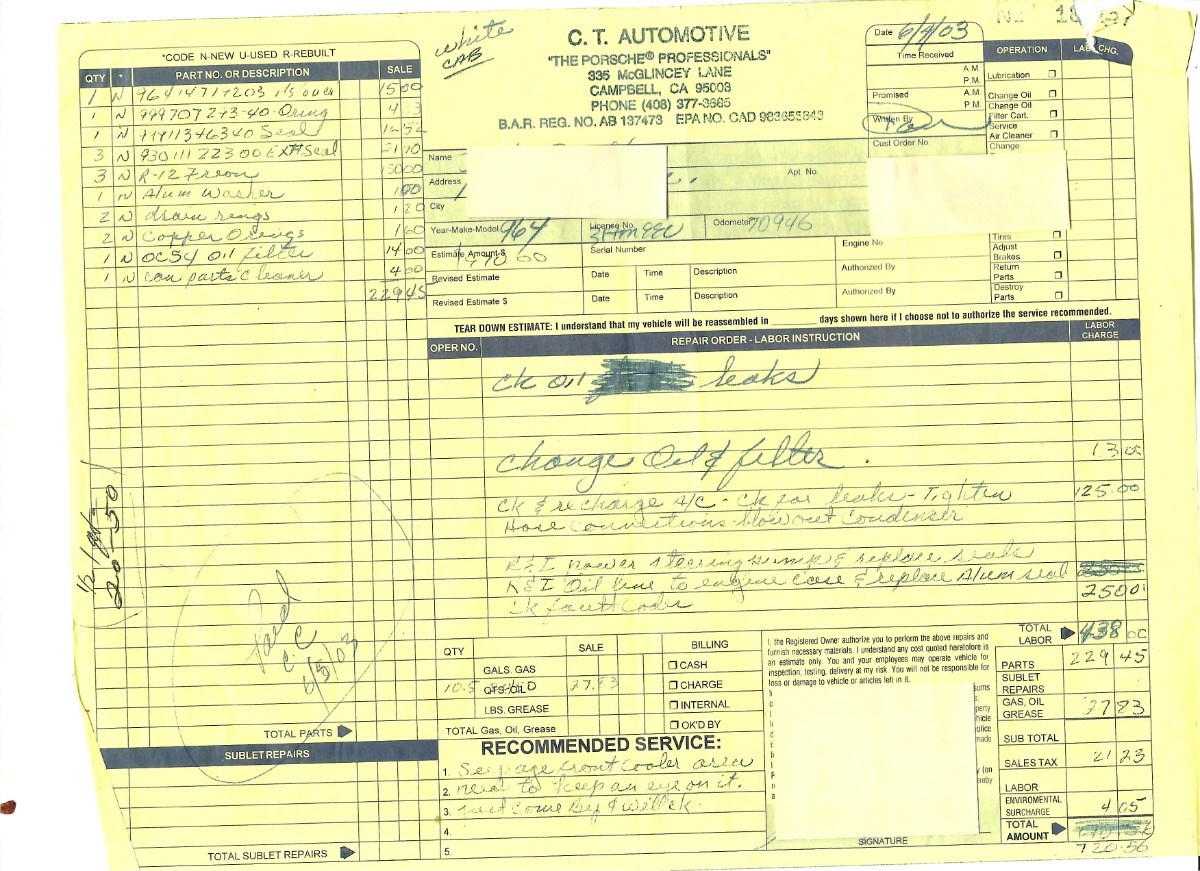 white
CAB
C. T. AUTOMOTIVE
"THE PORSCHE® PROFESSIONALS"
335 McGLINCEY LANE
CAMPBELL, CA 95008
PHONE (408) 377-3885
B.A.R. REG. NO. AB 137473 EPA NO. CAD 983655843
Date 6/4/03
Time Received
A.M.
P.M.
Promised A.M.
P.M.
Written By
Cust Order No.
OPERATION LAB. CHG.
Lubrication
Change Oil
Change Oil
Filter Cart.
Service
Air Cleaner
Change
Tires
Adjust
Brakes
Return
Parts
Destroy
Parts
*CODE N-NEW U-USED R-REBUILT
QTY * PART NO. OR DESCRIPTION SALE
1 N 15 00
1 N 999707273-40-Oring
1 N 99911346340 Seal 16 52
3 N 93011122300 EXH Seal 21 70
3 N R-12 Freon 150 00
1 N Alum Washer 1 00
2 N drain rings 1 20
2 N Copper Orings 1 60
1 N OC54 oil filter 14 00
1 N can parts cleaner 4 00
229 45
Name
Address Apt. No.
City
Year-Make-Model 964 License No. Odometer 70946
Estimate Amount $ Serial Number Engine No
Revised Estimate Date Time Description Authorized By
Revised Estimate $ Date Time Description Authorized By
TEAR DOWN ESTIMATE: I understand that my vehicle will be reassembled in ______ days shown here if I choose not to authorize the service recommended.
OPER NO. REPAIR ORDER - LABOR INSTRUCTION LABOR CHARGE
ck oil leaks
change Oil & filter. 13 00
ck & recharge A/C - ck for leaks - Tighten 125.00
Hose Connections blow out Condenser
R&I power steering pump & replace seals
R&I Oil line to engine case & replace Alum seal
ck fault Codes 250 0
20-50
Paid
CC
6/5/03
TOTAL PARTS
SUBLET REPAIRS
TOTAL SUBLET REPAIRS
QTY SALE BILLING
GALS. GAS CASH
10.5 QTS. OIL 27.83 CHARGE
LBS. GREASE INTERNAL
TOTAL Gas, Oil, Grease OK'D BY
RECOMMENDED SERVICE:
1. Seepage front cooler area
2. need to keep an eye on it.
3. just come by & will ck.
4.
5.
I, the Registered Owner authorize you to perform the above repairs and
furnish necessary materials. I understand any cost quoted heretofore is
an estimate only. You and your employees may operate vehicle for
inspection, testing, delivery at my risk. You will not be responsible for
loss or damage to vehicle or articles left in it.
SIGNATURE
TOTAL LABOR 438 00
PARTS 229 45
SUBLET REPAIRS
GAS, OIL GREASE 27 83
SUB TOTAL
SALES TAX 21 23
LABOR
ENVIROMENTAL SURCHARGE 4 05
TOTAL AMOUNT
720.56